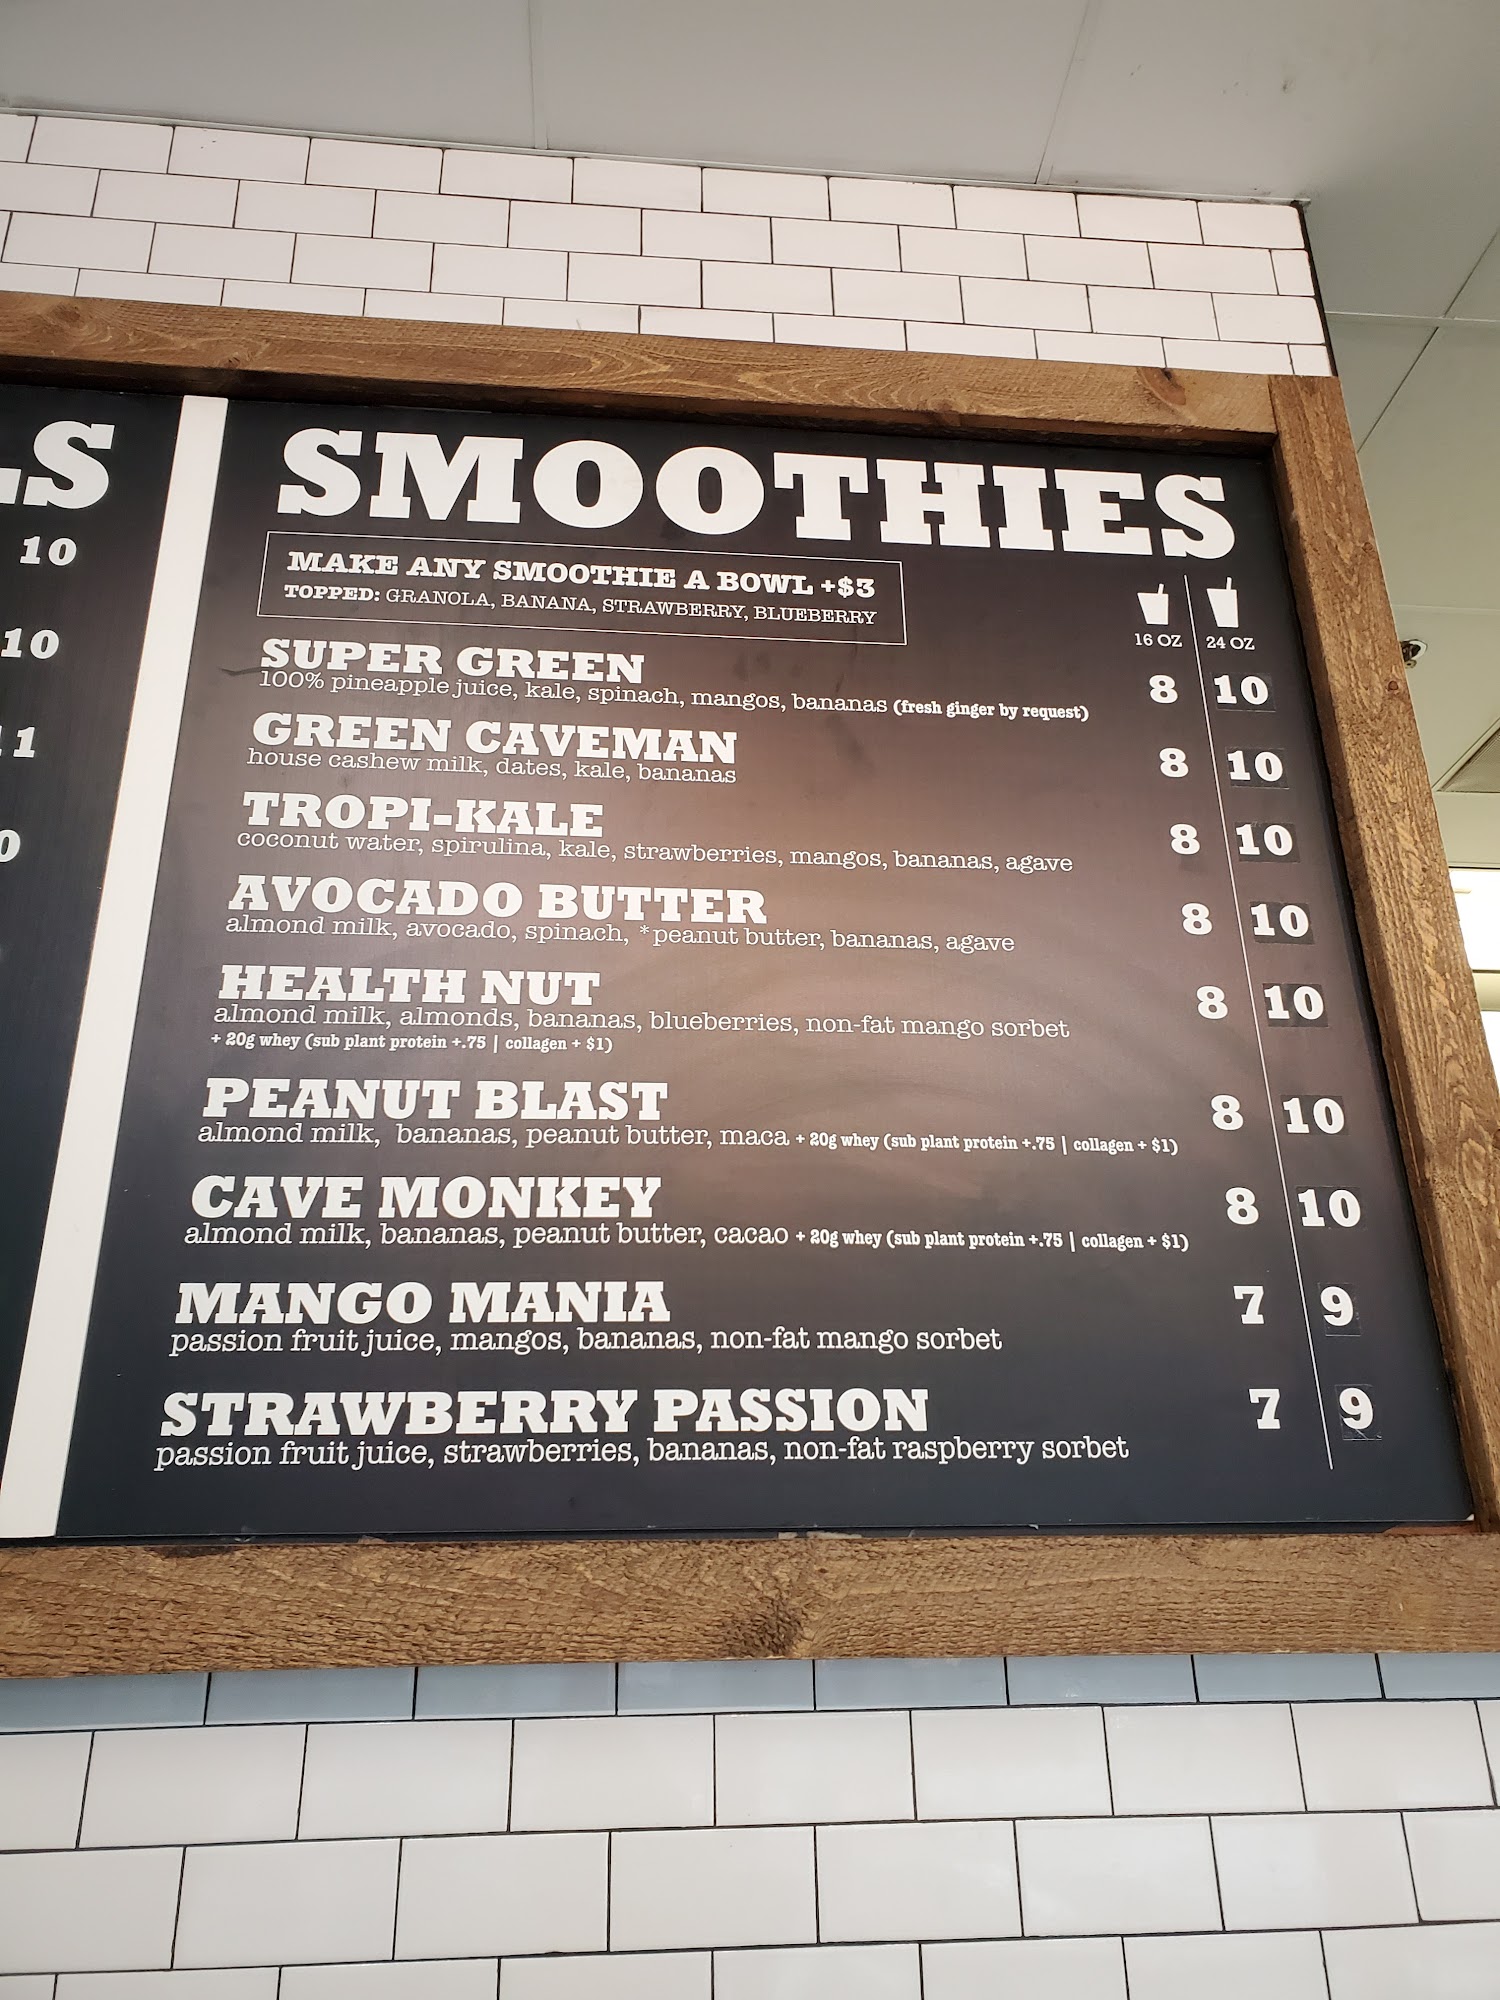 LS
10
10
11
0
SMOOTHIES
MAKE ANY SMOOTHIE A BOWL +$3
TOPPED: GRANOLA, BANANA, STRAWBERRY, BLUEBERRY
16 OZ 24 OZ
SUPER GREEN 8 10
100% pineapple juice, kale, spinach, mangos, bananas (fresh ginger by request)
GREEN CAVEMAN 8 10
house cashew milk, dates, kale, bananas
TROPI-KALE 8 10
coconut water, spirulina, kale, strawberries, mangos, bananas, agave
AVOCADO BUTTER 8 10
almond milk, avocado, spinach, *peanut butter, bananas, agave
HEALTH NUT 8 10
almond milk, almonds, bananas, blueberries, non-fat mango sorbet
+ 20g whey (sub plant protein +.75 | collagen + $1)
PEANUT BLAST 8 10
almond milk, bananas, peanut butter, maca + 20g whey (sub plant protein +.75 | collagen + $1)
CAVE MONKEY 8 10
almond milk, bananas, peanut butter, cacao + 20g whey (sub plant protein +.75 | collagen + $1)
MANGO MANIA 7 9
passion fruit juice, mangos, bananas, non-fat mango sorbet
STRAWBERRY PASSION 7 9
passion fruit juice, strawberries, bananas, non-fat raspberry sorbet